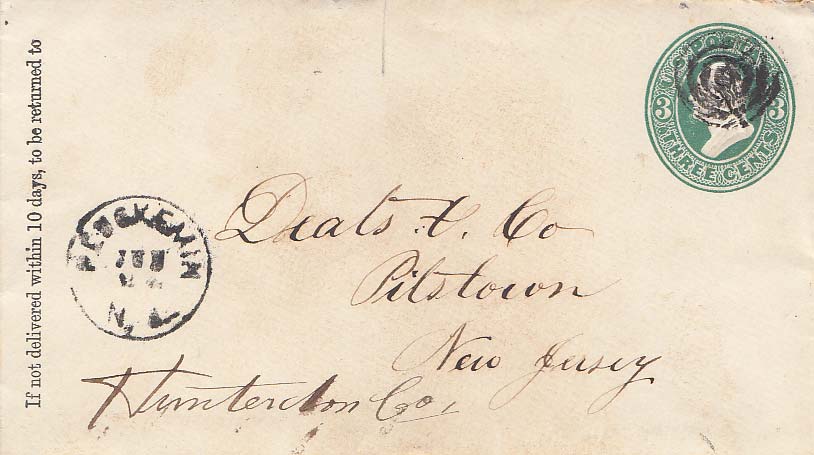 If not delivered within 10 days, to be returned to
U.S. POSTAGE
3 3
THREE CENTS
PLUCKEMIN
N. J.
Deats & Co
Pitstown
New Jersey
Hunterdon Co,